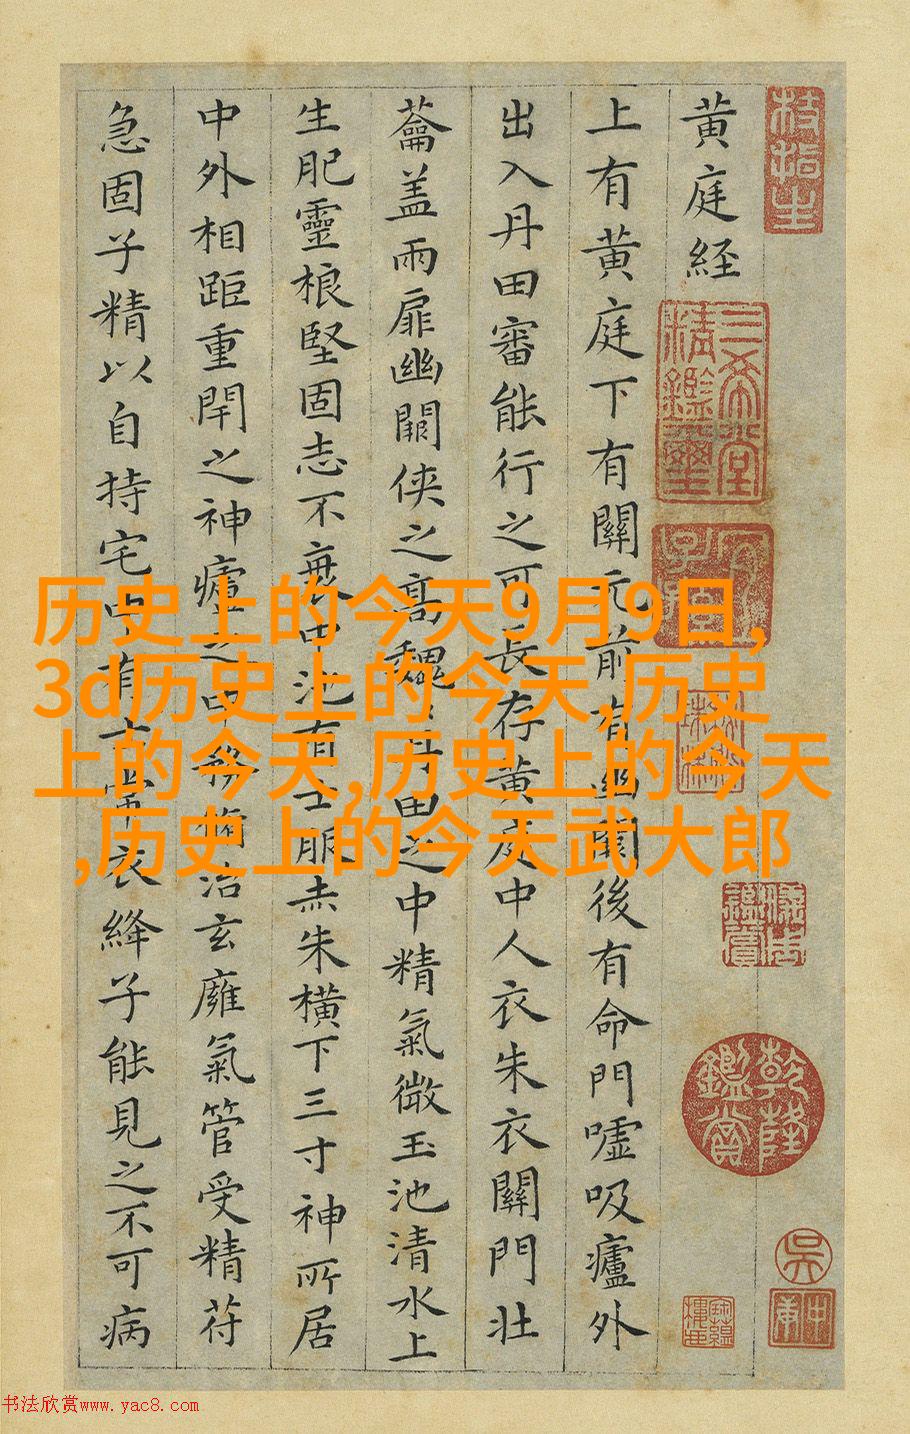 黄庭経
上有黄庭下有關元前有幽闕後有命門嘘吸廬外
出入丹田審能行之可長存黄庭中人衣朱衣關門壯
蘥盖兩扉幽闕俠之髙巍巍丹田之中精氣微玉池清水上
生肥靈根堅固志不衰中池有士服赤朱横下三寸神所居
中外相距重閇之神廬之中務脩治玄廱氣管受精苻
急固子精以自持宅中有士常衣絳子能見之不可病
三希堂精鑑璽
乾隆鑑賞
吴
历史上的今天9月9日,
3d历史上的今天 历史
上的今天,历史上的今天
,历史上的今天武大郎
书法欣赏www.yac8.com